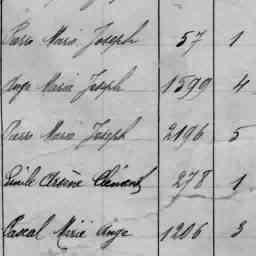 Pierre Marie Joseph 57 1
Ange Marie Joseph 1599 4
Pierre Marie Joseph 2196 5
Emile Arsène Clément 278 1
Pascal Marie Ange 1206 3